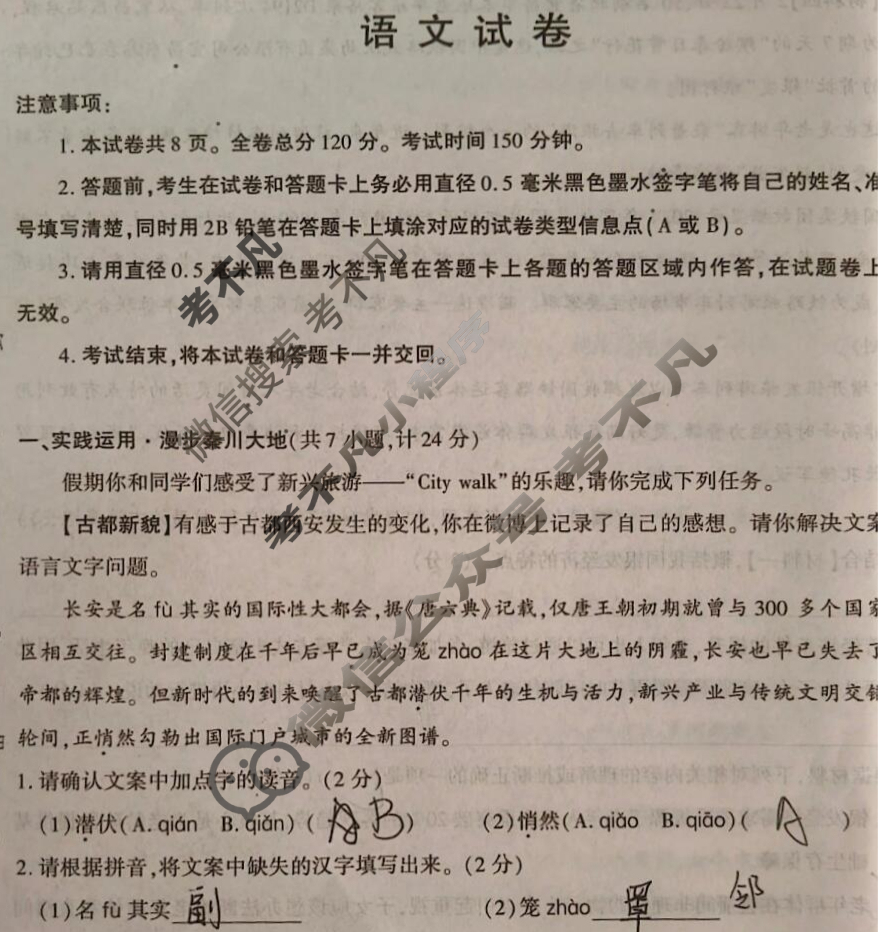 语文试卷
注意事项:
1. 本试卷共8页。全卷总分120分。考试时间150分钟。
2. 答题前,考生在试卷和答题卡上务必用直径0.5毫米黑色墨水签字笔将自己的姓名、准
号填写清楚,同时用2B铅笔在答题卡上填涂对应的试卷类型信息点(A或B)。
3. 请用直径0.5毫米黑色墨水签字笔在答题卡上各题的答题区域内作答,在试题卷上
无效。
4. 考试结束,将本试卷和答题卡一并交回。
一、实践运用·漫步秦川大地(共7小题,计24分)
假期你和同学们感受了新兴旅游——“City walk”的乐趣,请你完成下列任务。
【古都新貌】有感于古都西安发生的变化,你在微博上记录了自己的感想。请你解决文案
语言文字问题。
长安是名 fù 其实的国际性大都会,据《唐六典》记载,仅唐王朝初期就曾与 300 多个国家
区相互交往。封建制度在千年后早已成为笼 zhào 在这片大地上的阴霾,长安也早已失去了
帝都的辉煌。但新时代的到来唤醒了古都潜伏千年的生机与活力,新兴产业与传统文明交错
轮间,正悄然勾勒出国际门户城市的全新图谱。
1. 请确认文案中加点字的读音。(2分)
(1)潜伏(A. qián B. qiǎn) ( B ) (2)悄然(A. qiǎo B. qiāo) ( A )
2. 请根据拼音,将文案中缺失的汉字填写出来。(2分)
(1)名 fù 其实 副 (2)笼 zhào 罩
考不凡
微信搜索 考不凡
考不凡小程序
微信公众号 考不凡